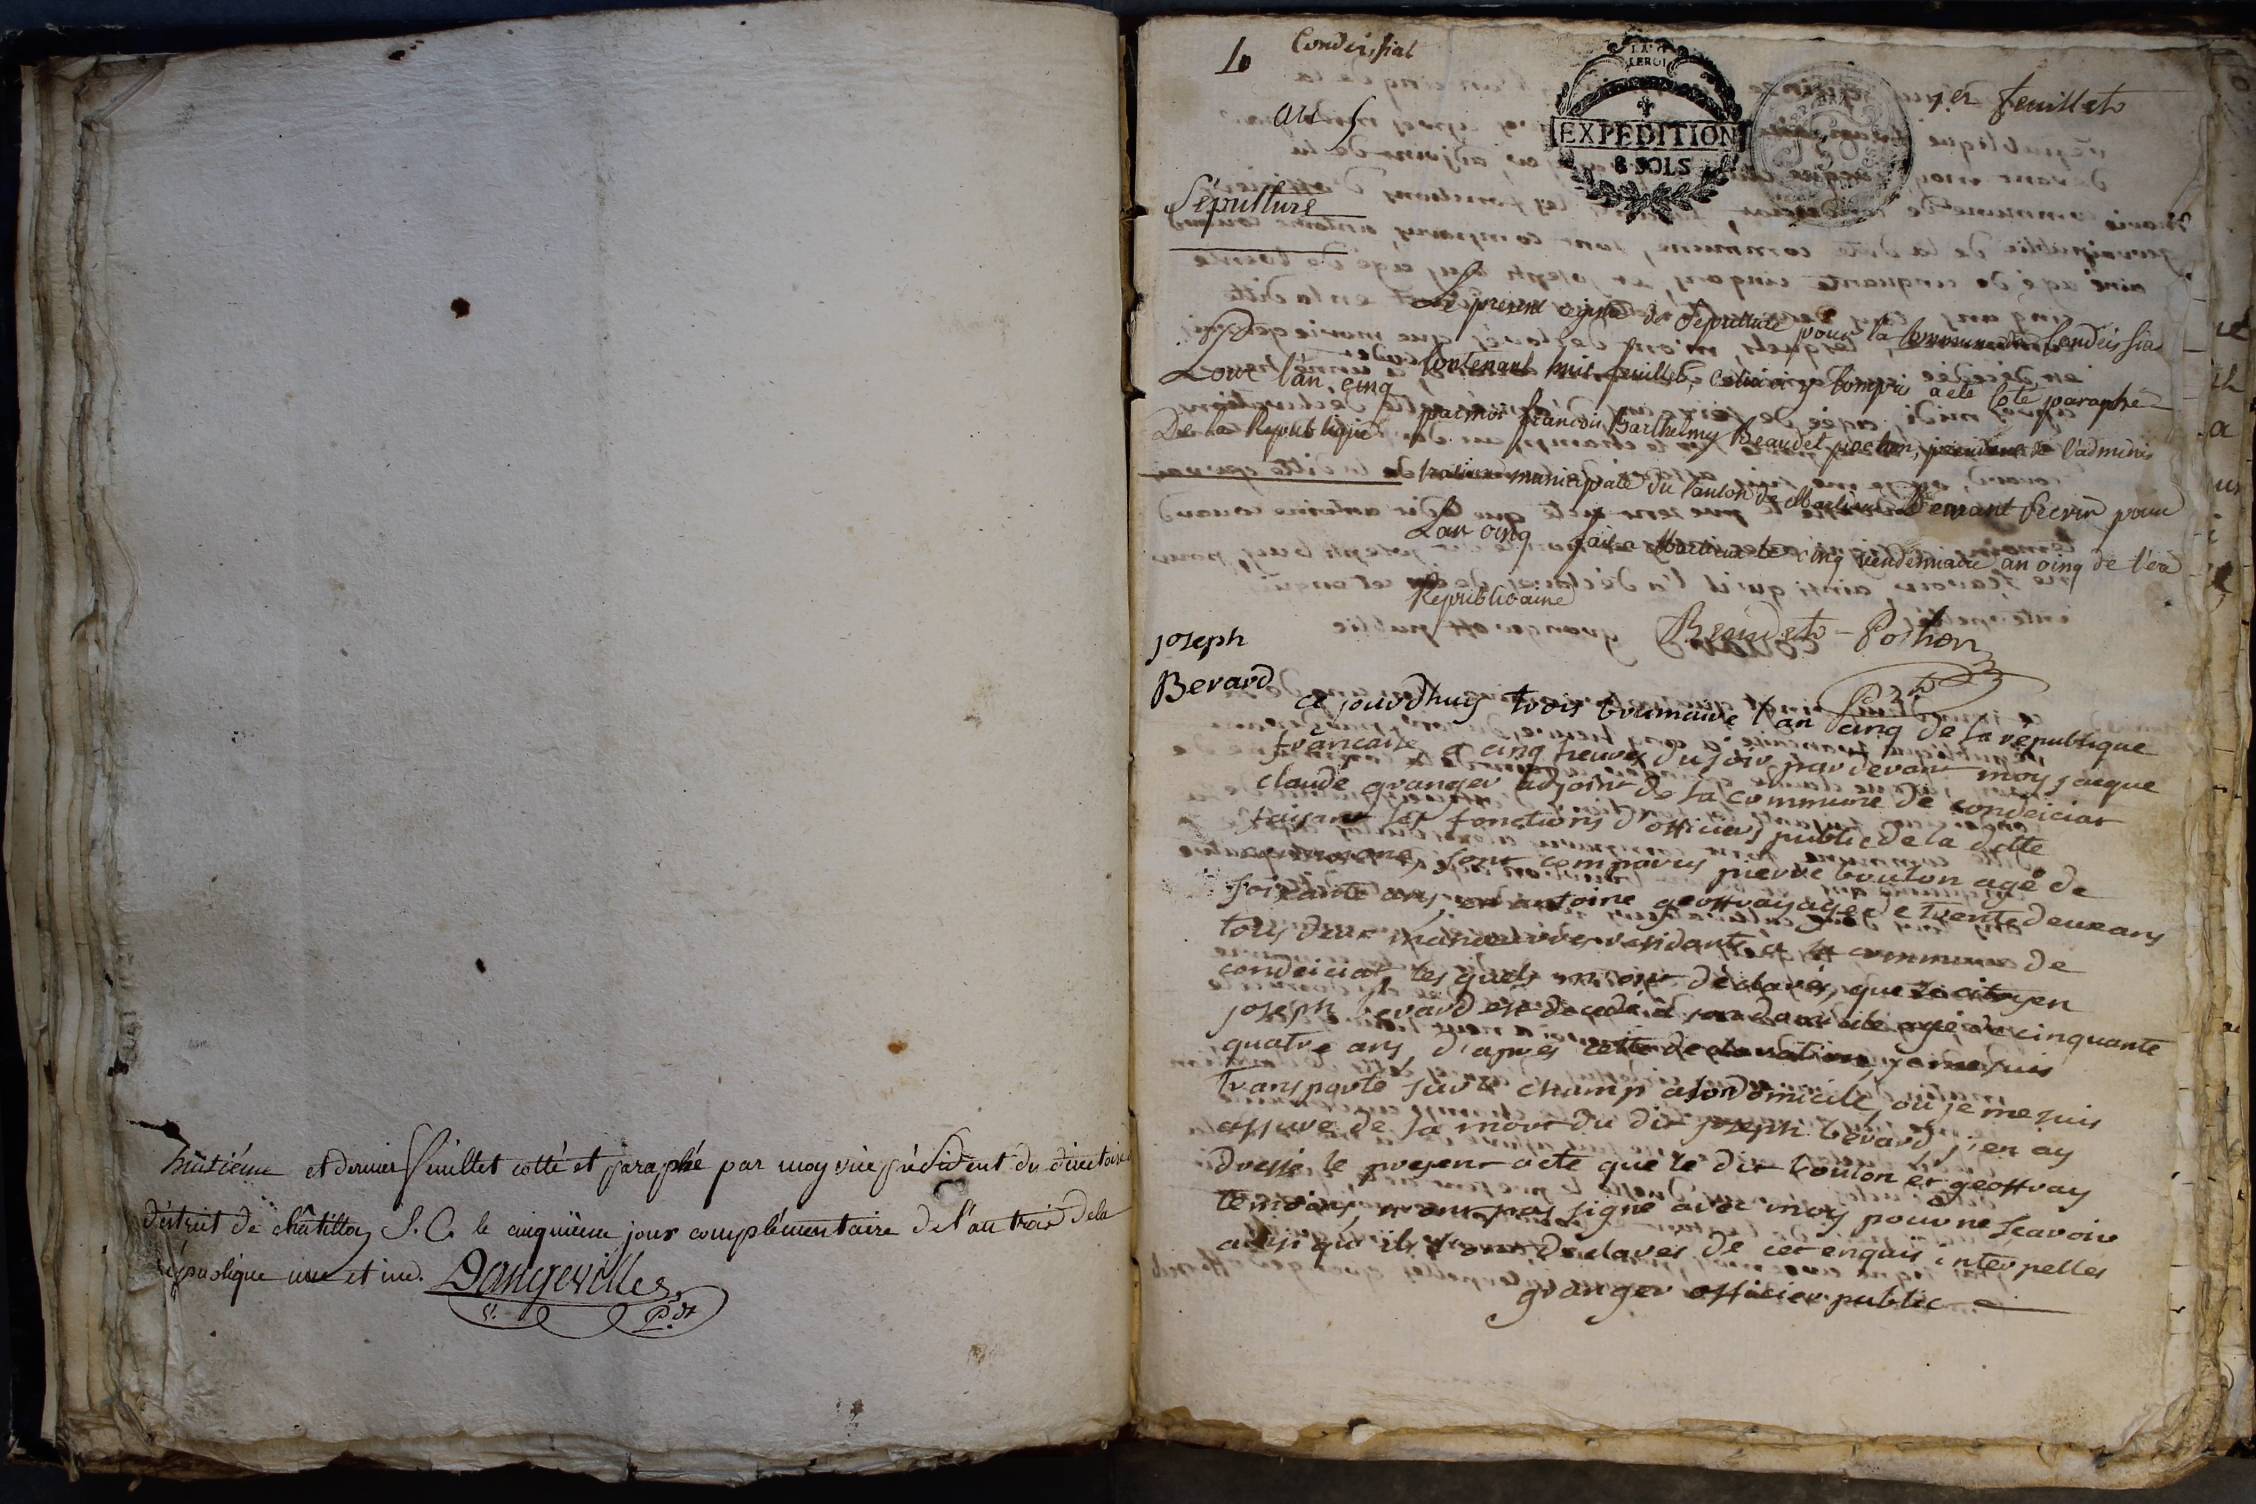 huitiéme et dernier feuillet cotté et paraphé par moy vice président du directoire
district de châtillon S. C. le cinquieme jour complémentaire de l'an trois de la
république une et ind. Dangeville
P.dt
1
Condeissiat
1.er feuillet
LA
LE ROI
EXPEDITION
8 SOLS
an 5
Sépulture
Le present registre de Sepulture pour la Commune de Condeissia
Pour l'an cinq
De la Republique
Contenant huit feuillets, celui cy Compris a eté Coté paraphé
par moi francois Barthelmy Beaudet pochon, president de l'adminis
tration municipale du Canton de Marlieux Devant Servir pour
L'an cinq fait a Marlieux le cinq vendemiaire an cinq de l'ere
Republicaine
Beaudet - Pochon
P.dt
joseph
Berard
ce jourdhuy trois brumaire l'an cinq de la republique
francaise a cinq heures du soir par devant moy jacque
claude granger adjoint de la commune de condeiciat
faisant les fonctions d'officiers public de la ditte
commune, sont comparus pierre boulon agé de
soixante ans, et antoine geoffray agé de trente deux ans
tous deux manoeuvres residants a la commune de
condeiciat, les quels m'ont déclarés, que le citoyen
joseph berard est decedé à son domicile agé de cinquante
quatre ans, d'apres cette declaration, je me suis
transporté sur le champ a son domicile, ou je me suis
assure de la mort du dit joseph berard, j'en ay
dressé le present acte que le dit boulon et geoffray
temoins, n'ont pas signé avec moy pour ne scavoir
ainsi qu'ils l'ont déclarés de ce enquis interpelles
granger officier public